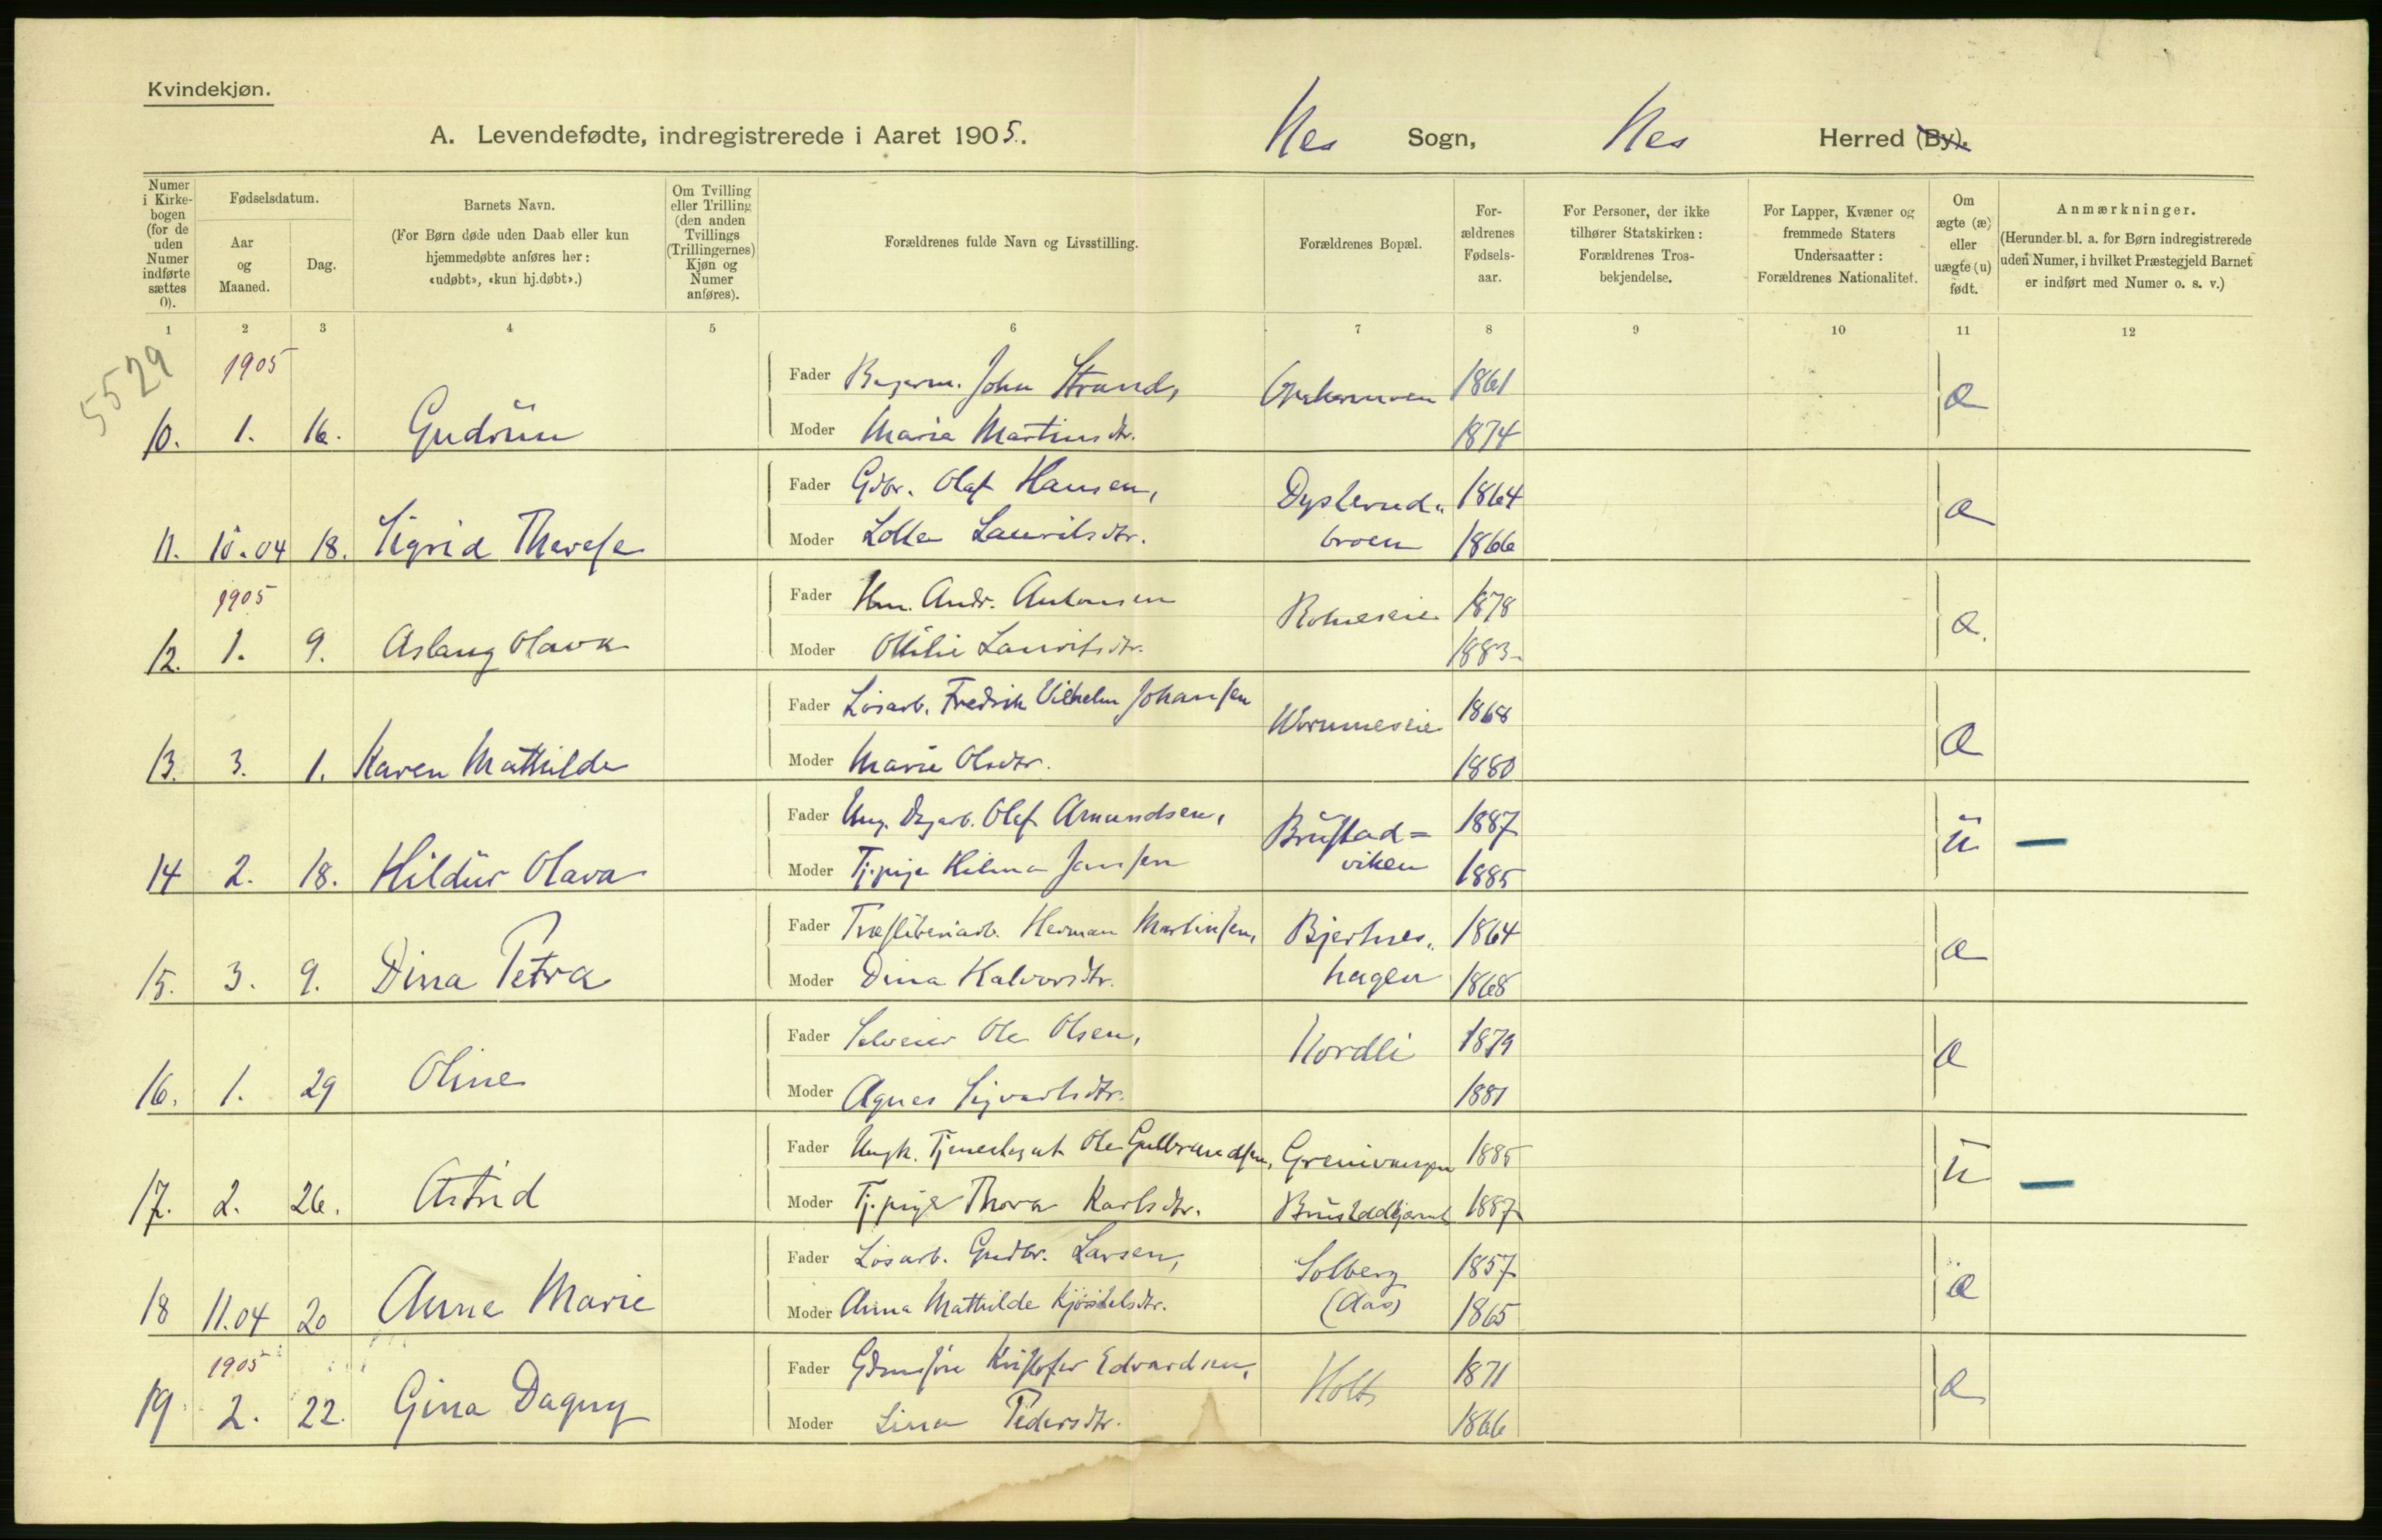 Kvindekjøn.
A. Levendefødte, indregistrerede i Aaret 1905. Nes Sogn, Nes Herred (By).
Numer i Kirkebogen (for de uden Numer indførte sættes 0).
Fødselsdatum.
Aar og Maaned.
Dag.
Barnets Navn.
(For Børn døde uden Daab eller kun hjemmedøbte anføres her: «udøbt», «kun hj.døbt».)
Om Tvilling eller Trilling (den anden Tvillings (Trillingernes) Kjøn og Numer anføres).
Forældrenes fulde Navn og Livsstilling.
Forældrenes Bopæl.
Forældrenes Fødselsaar.
For Personer, der ikke tilhører Statskirken: Forældrenes Trosbekjendelse.
For Lapper, Kvæner og fremmede Staters Undersaatter: Forældrenes Nationalitet.
Om ægte (æ) eller uægte (u) født.
Anmærkninger.
(Herunder bl. a. for Børn indregistrerede uden Numer, i hvilket Præstegjeld Barnet er indført med Numer o. s. v.)
1 2 3 4 5 6 7 8 9 10 11 12
5529
1905
Fader John Strand, 1861
10. 1. 16. Gudrun Moder Maria Martinsdtr. 1874 æ
Fader Gdbr. Olaf Hansen, Dysterud- 1864
11. 10.04 18. Sigrid Therese Moder Lotte Lauritsdtr. broen 1866 æ
1905
Fader Andr. Antonsen 1878
12. 1. 9. Aslaug Olava Moder Otilie Lauritsdtr. 1883 æ
Fader Løsarb. Fredrik Vilhelm Johansen 1868
13. 3. 1. Karen Mathilde Moder Marie Olsdtr. 1880 æ
Fader Ung. Dagarb. Olaf Amundsen, Brustad- 1887
14 2. 18. Hildur Olava Moder Tj.pige Hilma Jansen viken 1885 u —
Fader Træsliberiarb. Herman Martinsen, Bjertnes- 1864
15. 3. 9. Dina Petra Moder Dina Halvorsdtr. hagen 1868 æ
Fader Selveier Ole Olsen, Nordli 1879
16. 1. 29 Oline Moder Agnes Sigvartsdtr. 1881 æ
Fader Ungk. Tjenestegut Ole Gulbrandsen, 1885
17. 2. 26. Astrid Moder Tj.pige Thora Karlsdtr. 1887 u —
Fader Løsarb. Gudbr. Larsen, Solberg 1857
18 11.04 20 Anne Marie Moder Anna Mathilde Kjøstelsdtr. (Aas) 1865 æ
1905
Fader Kristofer Edvardsen, Holt 1871
19 2. 22. Gina Dagny Moder Lina Pedersdtr. 1866 æ